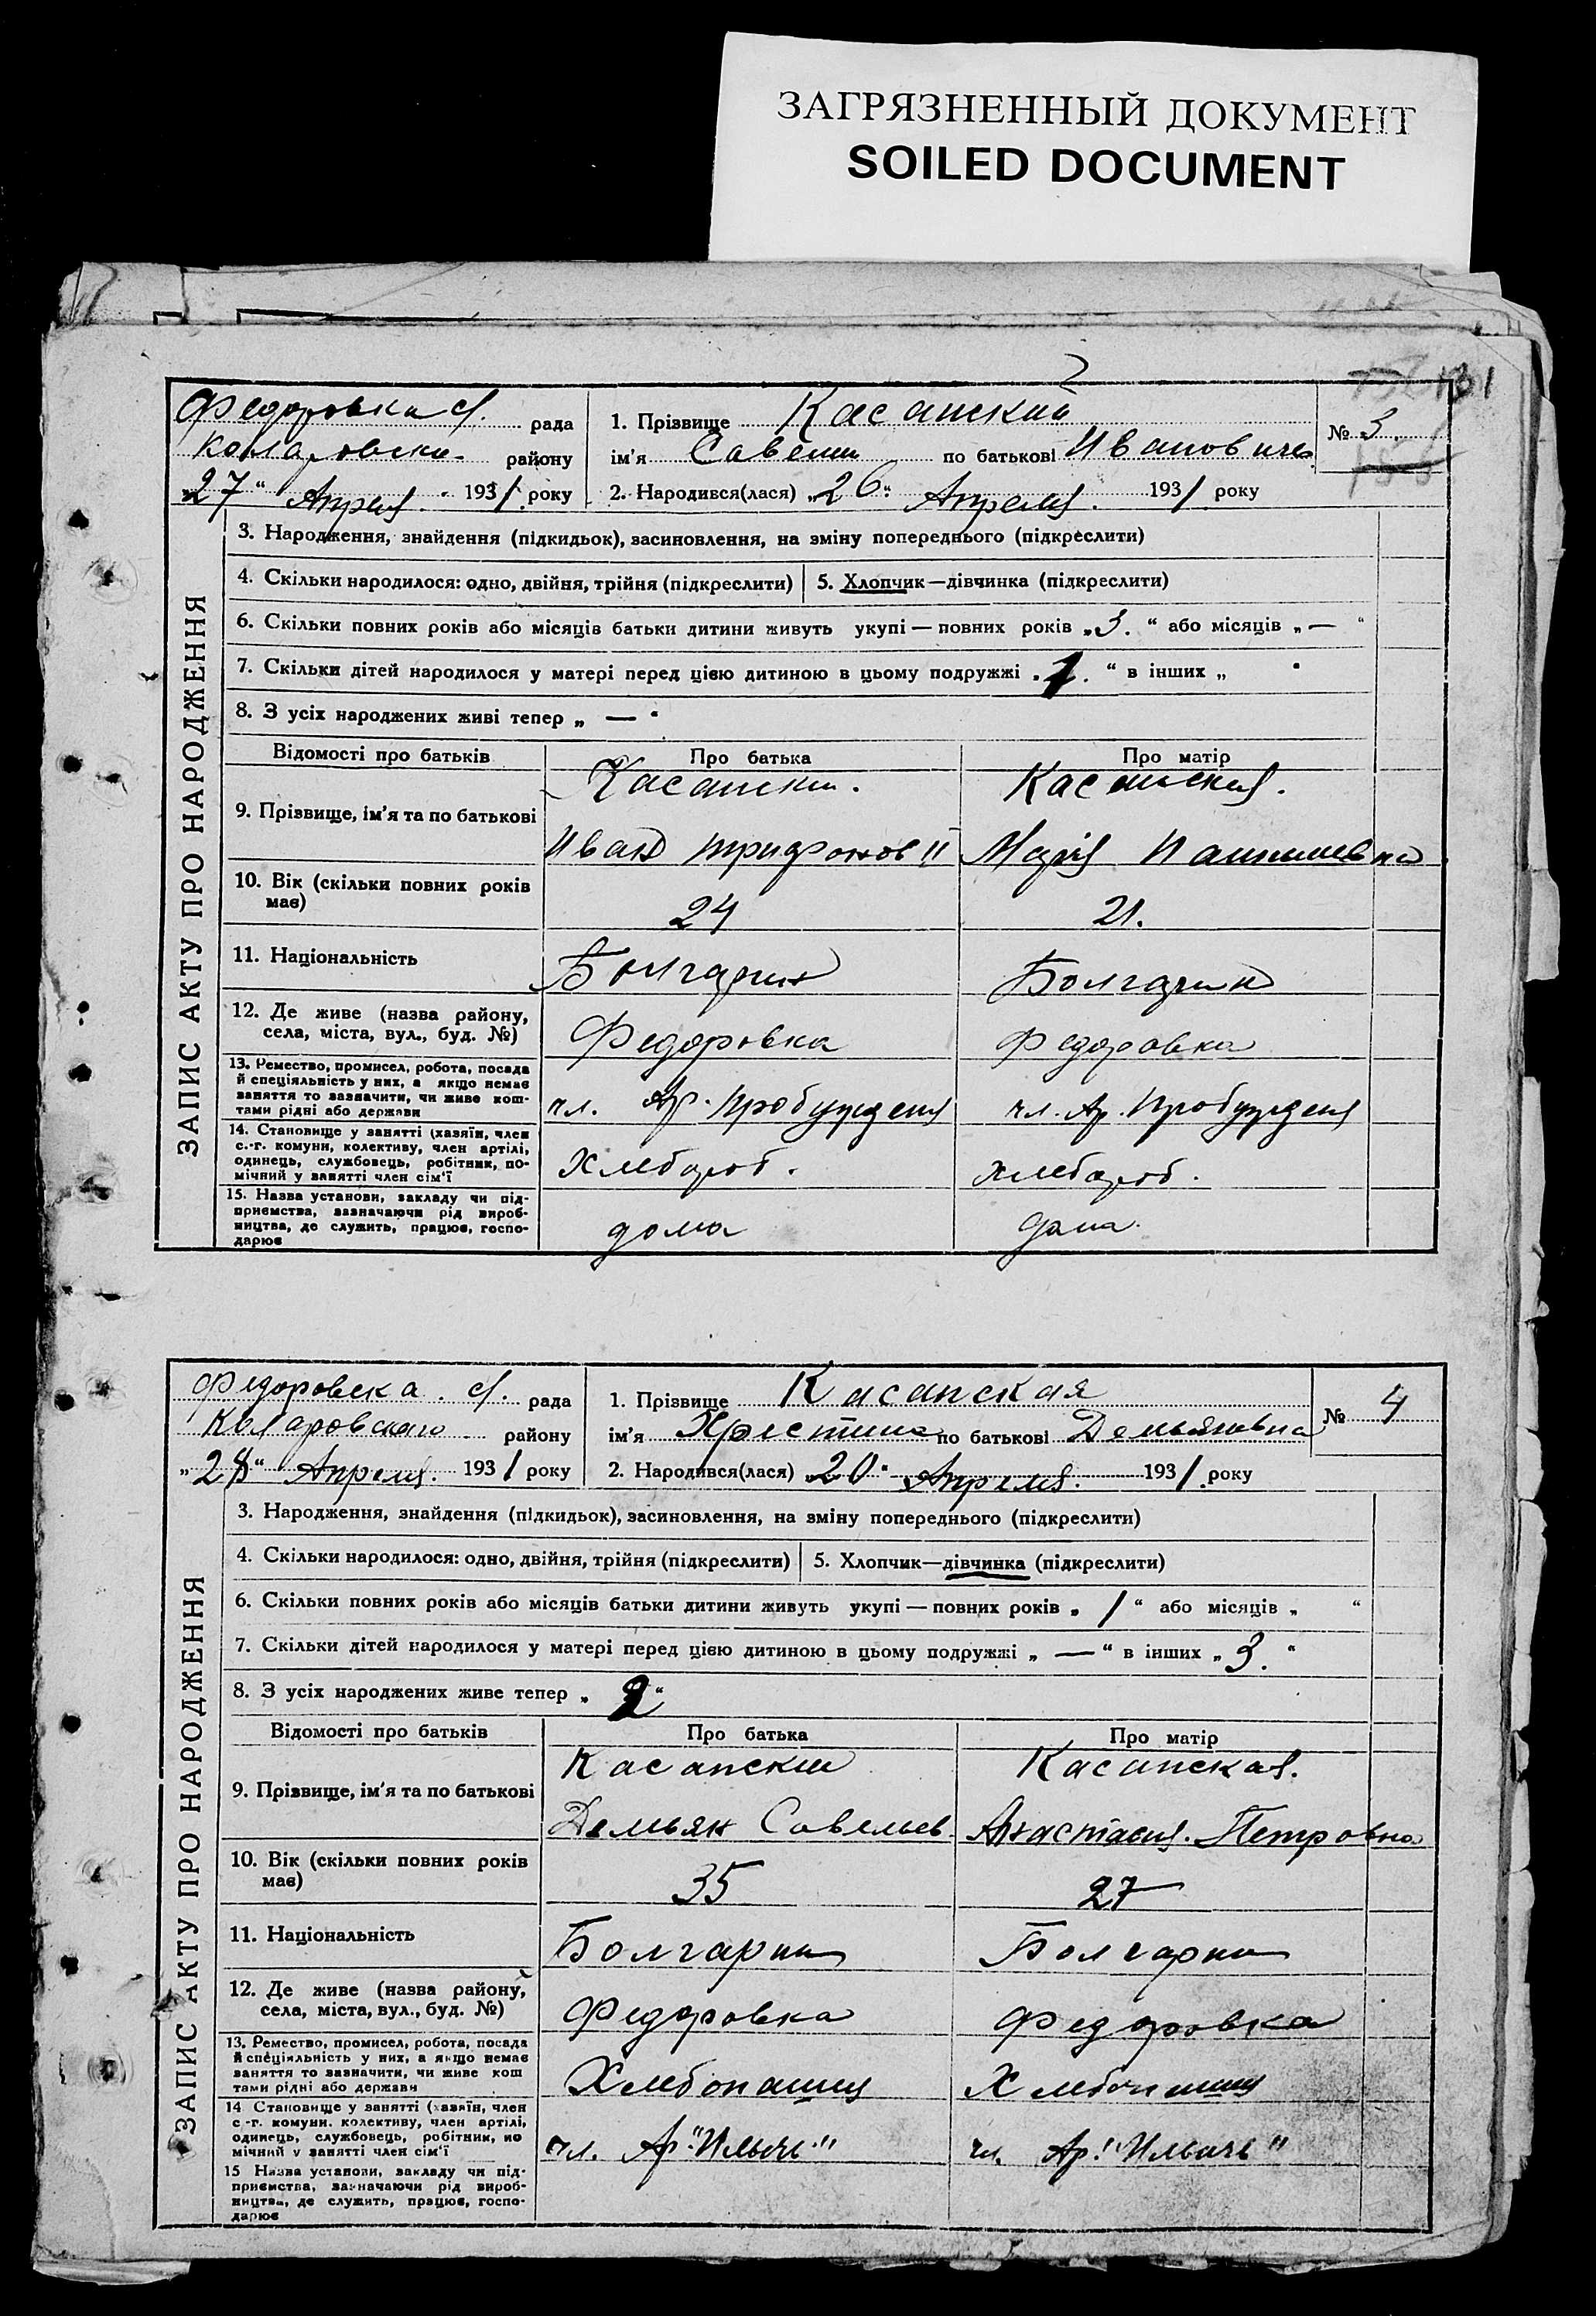 ЗАГРЯЗНЕННЫЙ ДОКУМЕНТ
SOILED DOCUMENT
Федоровка с/. рада
района району
"27" Апреля. 1931. року
1. Прізвище Касапский
ім'я Савелий по батькові Иванович
2. Народився(лася) "26" Апреля. 1931. року
№ 3.
ЗАПИС АКТУ ПРО НАРОДЖЕННЯ
3. Народження, знайдення (підкидьок), засиновлення, на зміну попереднього (підкреслити)
4. Скільки народилося: одно, двійня, трійня (підкреслити) 5. Хлопчик—дівчинка (підкреслити)
6. Скільки повних років або місяців батьки дитини живуть укупі — повних років „3.“ або місяців „—“
7. Скільки дітей народилося у матері перед цією дитиною в цьому подружжі „1.“ в інших „ “
8. З усіх народжених живі тепер „—“
Відомості про батьків Про батька Про матір
9. Прізвище, ім'я та по батькові
Касапский. Касапская.
Иван Трифонов Мария
10. Вік (скільки повних років має) 24 21.
11. Національність Болгарин Болгарин
12. Де живе (назва району, села, міста, вул., буд. №) Федоровка Федоровка
13. Ремество, промисел, робота, посада й спеціяльність у них, а якщо немає заняття то зазначити, чи живе коштами рідні або держави
чл. Ар. Пробуждения чл. Ар. Пробуждения
14. Становище у занятті (хазяїн, член с.-г. комуни, колективу, член артілі, одинець, службовець, робітник, помічний у занятті член сім'ї
Хлебороб. хлебороб.
15. Назва установи, закладу чи підприємства, зазначаючи рід виробництва, де служить, працює, господарює
дома дома.
Федоровска. с/. рада
Коларовского району
"28" Апреля. 1931 року
1. Прізвище Касапская
ім'я Христина по батькові Демьяновна
2. Народився(лася) "20" Апреля. 1931. року
№ 4
ЗАПИС АКТУ ПРО НАРОДЖЕННЯ
3. Народження, знайдення (підкидьок), засиновлення, на зміну попереднього (підкреслити)
4. Скільки народилося: одно, двійня, трійня (підкреслити) 5. Хлопчик—дівчинка (підкреслити)
6. Скільки повних років або місяців батьки дитини живуть укупі — повних років „1“ або місяців „ “
7. Скільки дітей народилося у матері перед цією дитиною в цьому подружжі „—“ в інших „3.“
8. З усіх народжених живе тепер „2“
Відомості про батьків Про батька Про матір
9. Прізвище, ім'я та по батькові
Касапский Касапская.
Демьян Савельев. Анастасия. Петровна
10. Вік (скільки повних років має) 35 27
11. Національність Болгарин Болгарин
12. Де живе (назва району, села, міста, вул., буд. №) Федоровка Федоровка
13. Ремество, промисел, робота, посада й спеціяльність у них, а якщо немає заняття то зазначити, чи живе коштами рідні або держави
Хлебопашец Хлебопашец
14 Становище у занятті (хазяїн, член с.-г. комуни, колективу, член артілі, одинець, службовець, робітник, помічний у занятті член сім'ї
чл. Ар. "Ильичь" чл. Ар. "Ильичь"
15 Назва установи, закладу чи підприємства, зазначаючи рід виробництва, де служить, працює, господарює